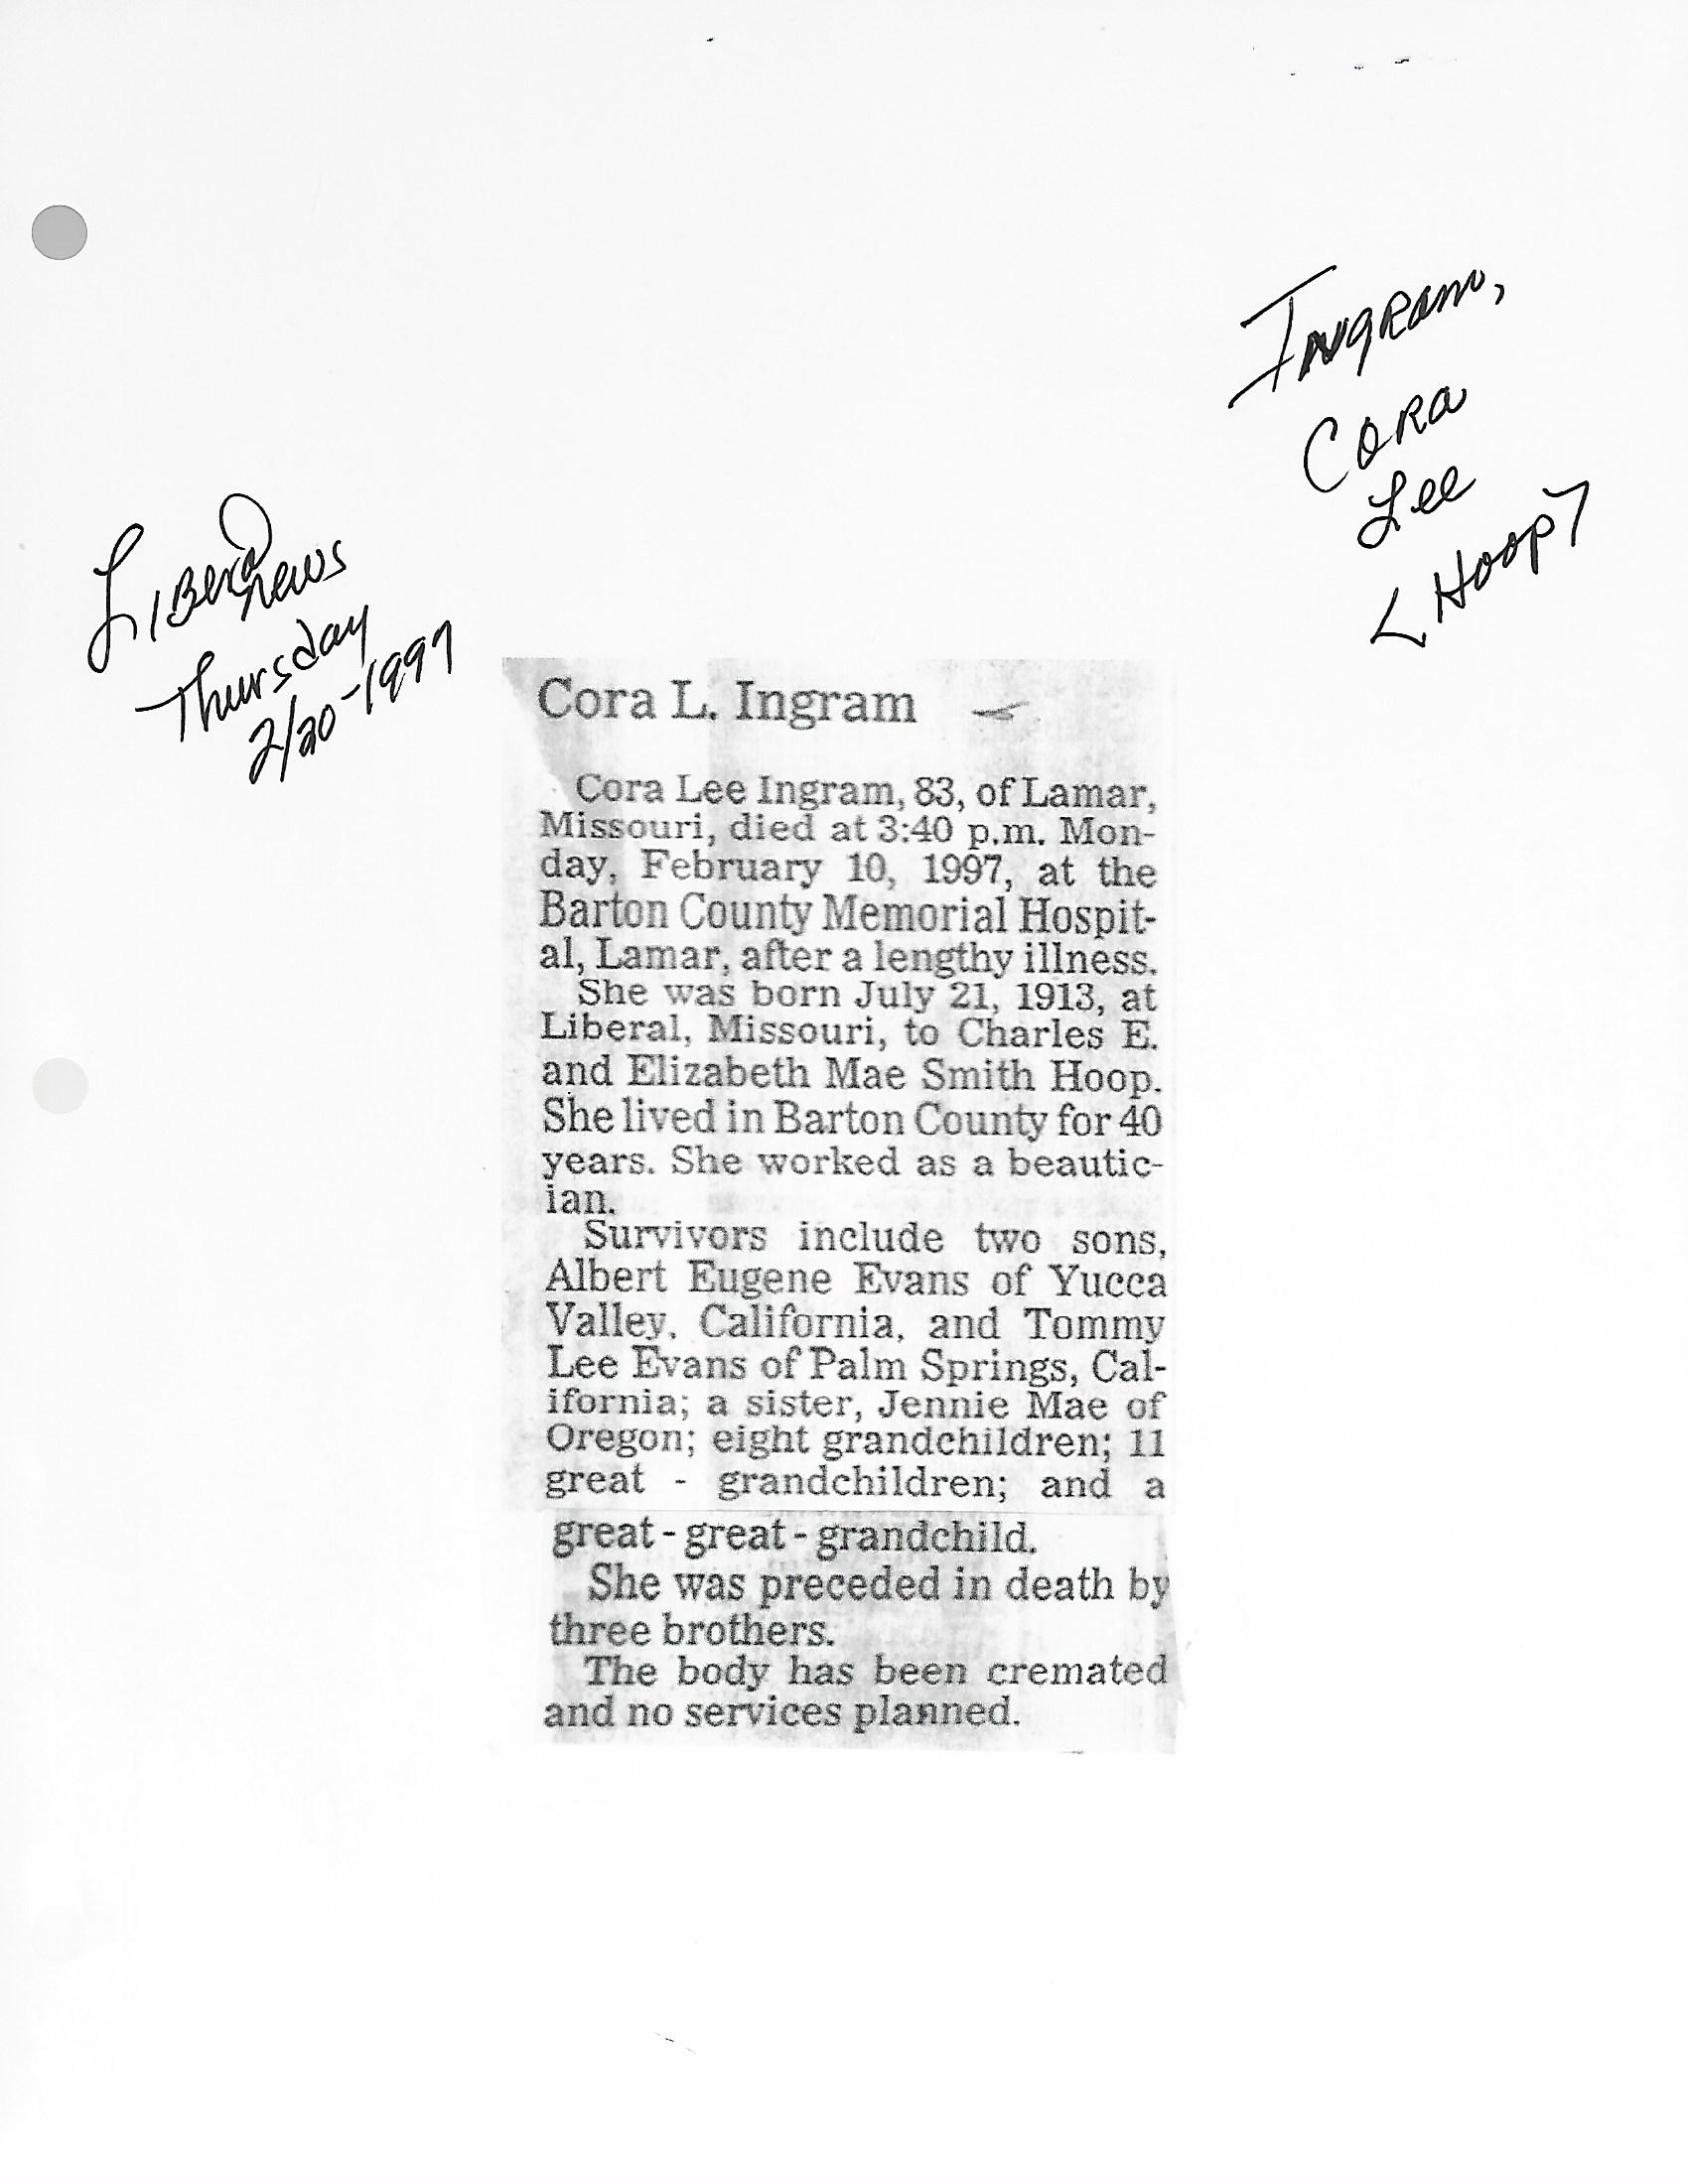 Ingram,
Cora
Lee
< Hoop >
Liberal News
Thursday
2/20-1997
Cora L. Ingram
Cora Lee Ingram, 83, of Lamar,
Missouri, died at 3:40 p.m. Mon-
day, February 10, 1997, at the
Barton County Memorial Hospit-
al, Lamar, after a lengthy illness.
She was born July 21, 1913, at
Liberal, Missouri, to Charles E.
and Elizabeth Mae Smith Hoop.
She lived in Barton County for 40
years. She worked as a beautic-
ian.
Survivors include two sons,
Albert Eugene Evans of Yucca
Valley, California, and Tommy
Lee Evans of Palm Springs, Cal-
ifornia; a sister, Jennie Mae of
Oregon; eight grandchildren; 11
great - grandchildren; and a
great - great - grandchild.
She was preceded in death by
three brothers.
The body has been cremated
and no services planned.